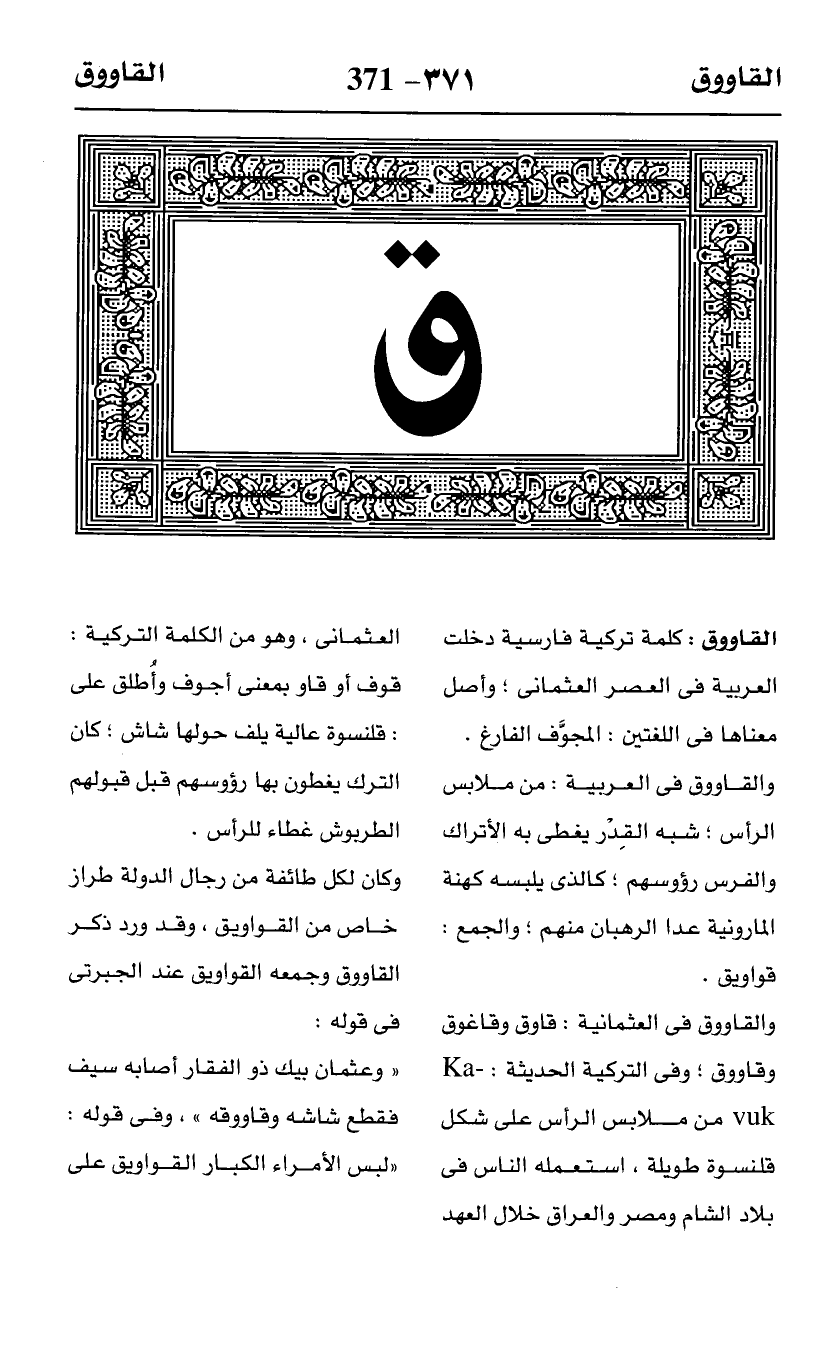 القاووق
٣٧١- 371
القاووق
ق
القاووق : كلمة تركية فارسية دخلت
العربية فى العصر العثمانى ؛ وأصل
معناها فى اللغتين : المجوَّف الفارغ .
والقـاووق فى العـربيـة : من مـلابس
الرأس ؛ شبه القِدْر يغطى به الأتراك
والفرس رؤوسهم ؛ كالذى يلبسه كهنة
المارونية عدا الرهبان منهم ؛ والجمع :
قواويق .
والقاووق فى العثمانية : قاوق وقاغوق
وقاووق ؛ وفى التركية الحديثة : Ka-
vuk من مـلابس الرأس على شكل
قلنسوة طويلة ، استعمله الناس فى
بلاد الشام ومصر والعراق خلال العهد
العثمانى ، وهو من الكلمة التركية :
قوف أو قاو بمعنى أجوف وأُطلق على
: قلنسوة عالية يلف حولها شاش ؛ كان
الترك يغطون بها رؤوسهم قبل قبولهم
الطربوش غطاء للرأس .
وكان لكل طائفة من رجال الدولة طراز
خـاص من القـواويق ، وقـد ورد ذكـر
القاووق وجمعه القواويق عند الجبرتى
فى قوله :
« وعثمان بيك ذو الفقار أصابه سيف
فقطع شاشه وقاووقه » ، وفى قوله :
«لبس الأمـراء الكبـار القـواويق على